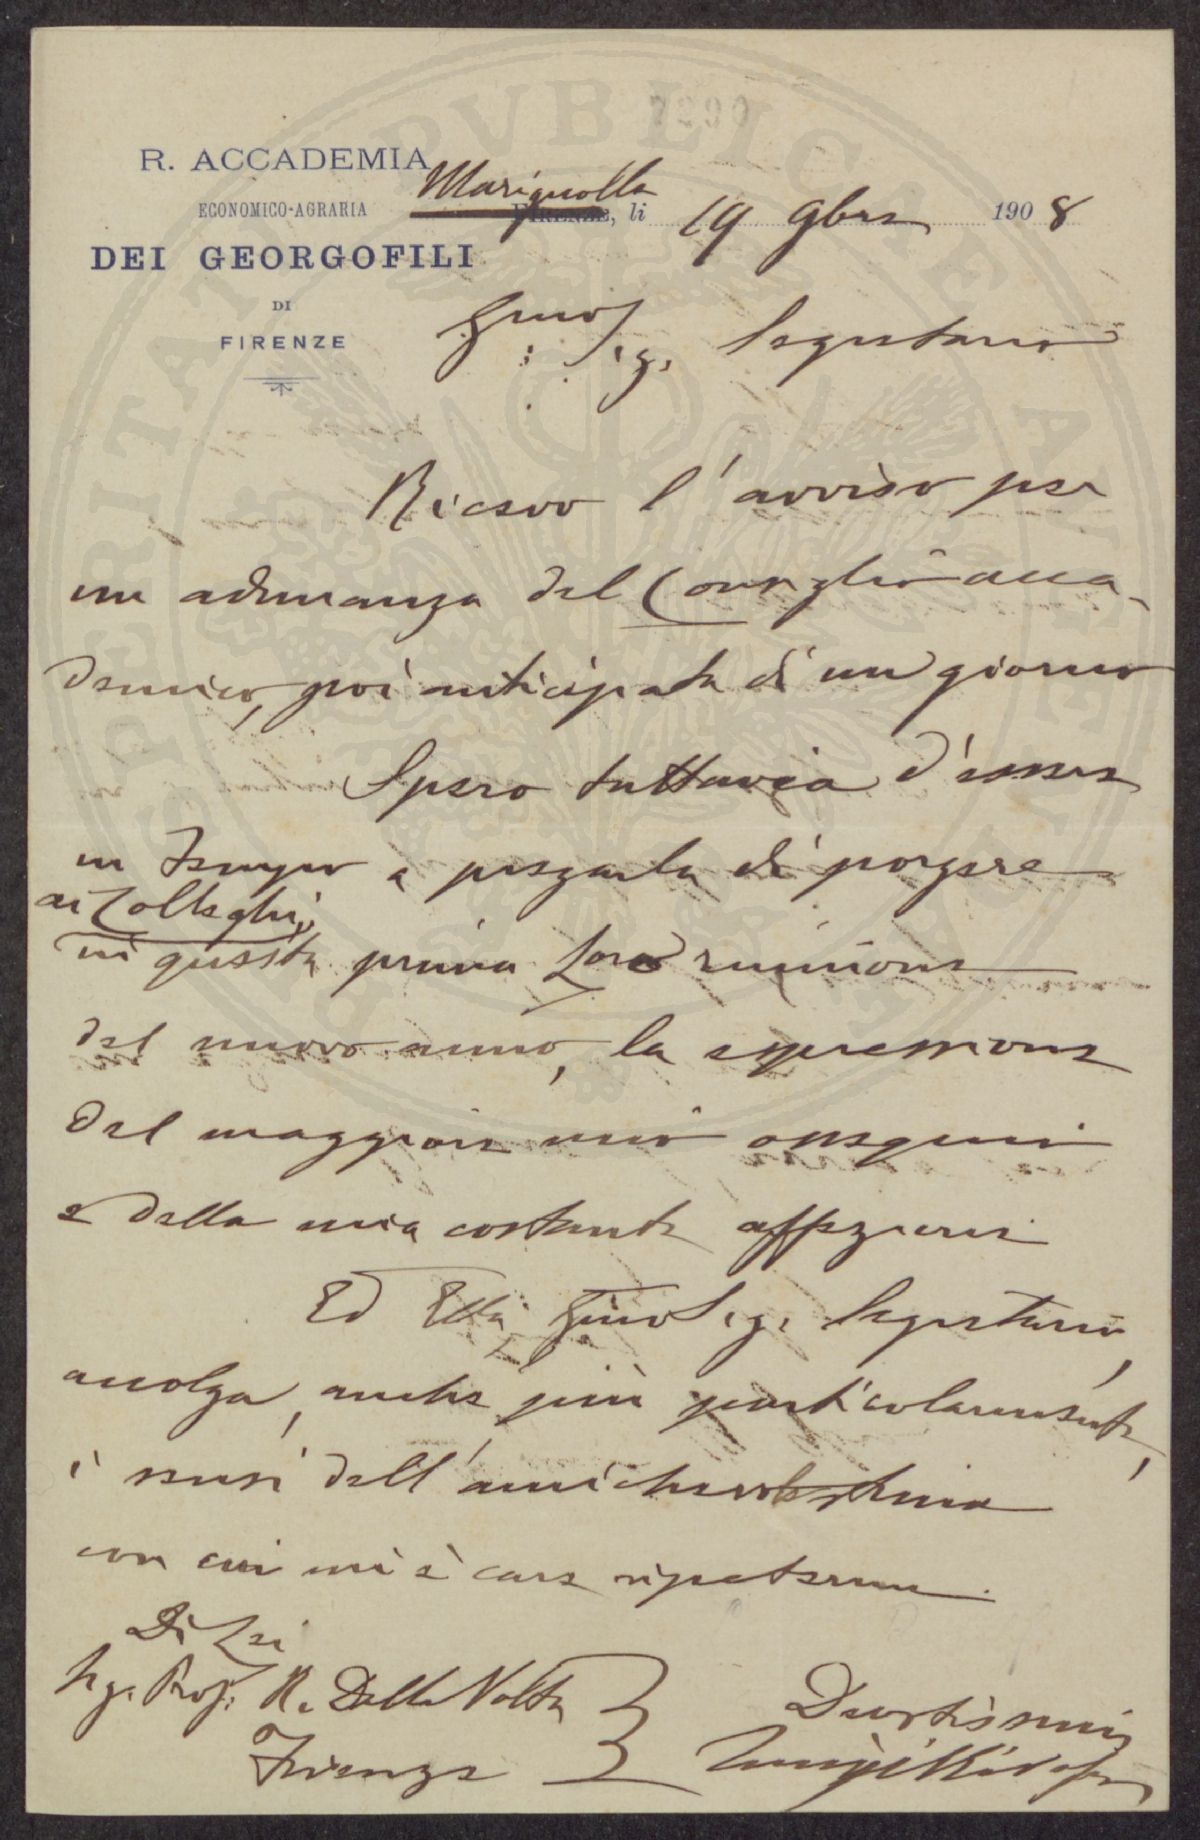 7290
R. ACCADEMIA
ECONOMICO-AGRARIA
DEI GEORGOFILI
DI
FIRENZE
Marignolla
FIRENZE, li 19 9bre 1908
Sig. Segretario
Ricevo l'avviso per
un adunanza del Consiglio acca-
demico, poi anticipata di un giorno
Spero tuttavia d'essere
in tempo a pregarla di porgere
ai Colleghi,
in questa prima Loro riunione
del nuovo anno, la espressione
del maggiore mio ossequio
e della mia costante affezione
Ed Ella Sig. Segretario,
accolga, anche più particolarmente,
i sensi dell'amichevole stima
con cui mi è caro ripetermi
Di Lei
Sig. Prof. R. Dalla Volta
Firenze
Devotissimo